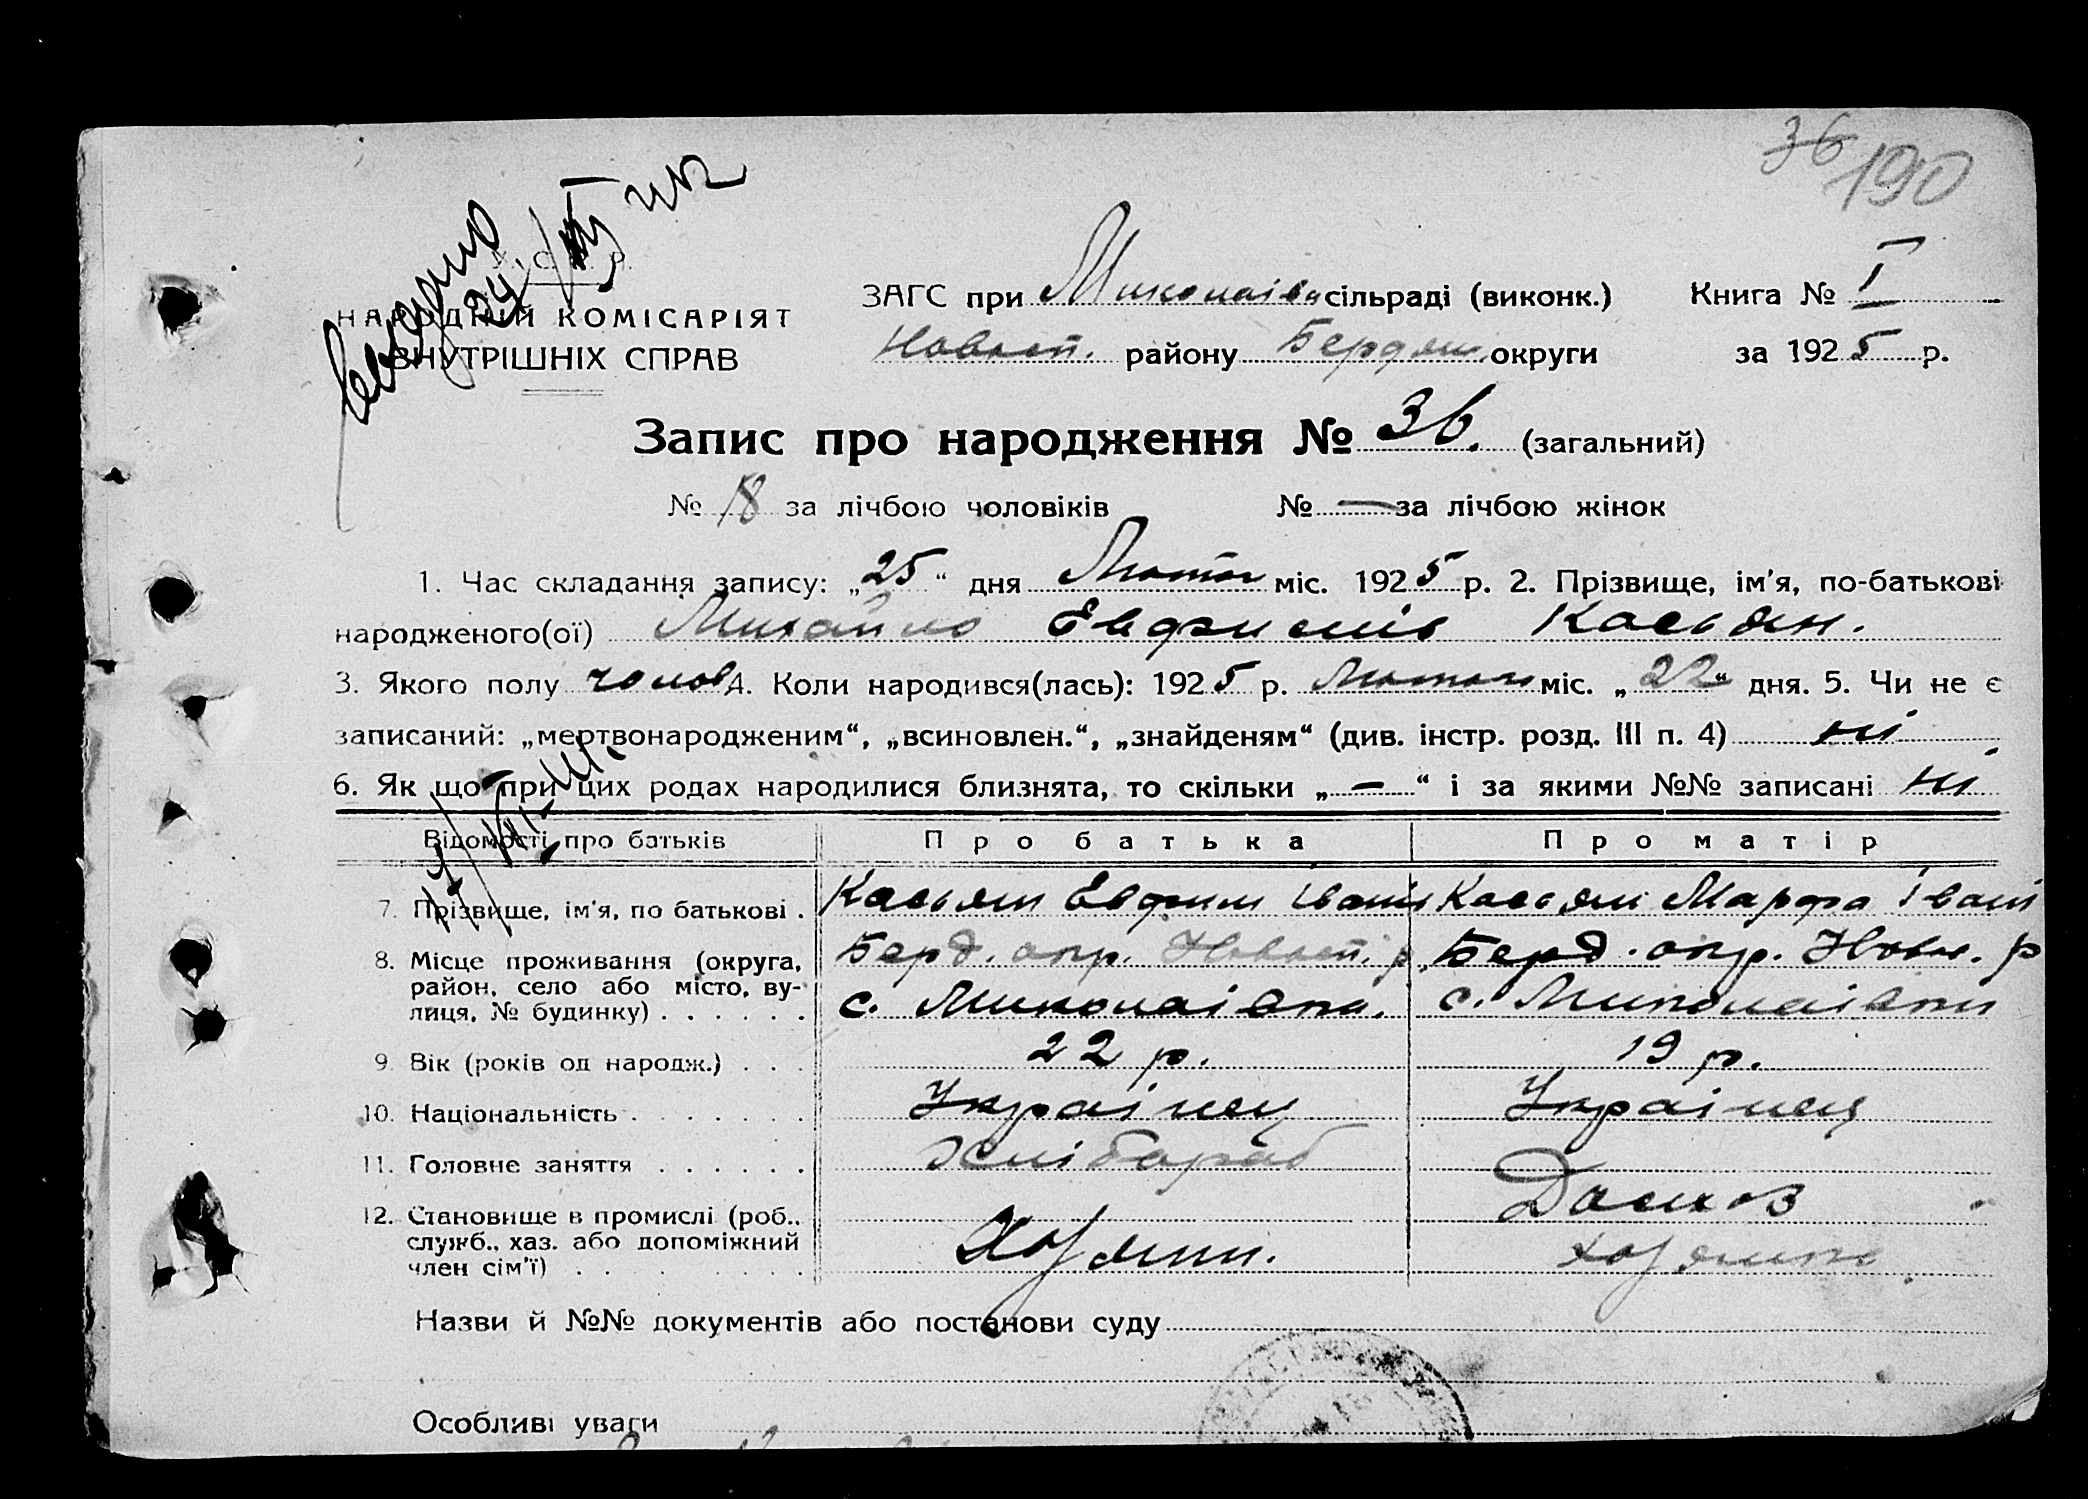 36
190
У. С. Р. Р.
НАРОДНІЙ КОМІСАРІЯТ
ВНУТРІШНІХ СПРАВ
ЗАГС при Миколаівс сільраді (виконк.) Книга № I
Новосп. району Бердян. округи за 1925 р.
Запис про народження № 36. (загальний)
№ 18 за лічбою чоловіків № — за лічбою жінок
1. Час складання запису: „25“ дня Лютого міс. 1925 р. 2. Прізвище, ім'я, по-батькові
народженого(ої) Михайло Евфимів Касьян.
3. Якого полу чолов. 4. Коли народився(лась): 1925 р. Лютого міс. „22“ дня. 5. Чи не є
записаний: „мертвонародженим“, „всиновлен.“, „знайденям“ (див. інстр. розд. III п. 4) ні
6. Як що при цих родах народилися близнята, то скільки „—“ і за якими №№ записані ні
Відомості про батьків Про батька Про матір
7. Прізвище, ім'я, по батькові . Касьян Евфим Іванів Касьян Марфа Іван
8. Місце проживання (округа, район, село або місто, вулиця, № будинку) . . . . . . Берд. окр. Новосп. р. с. Миколаівка. Берд. окр. Новос. р с. Миколаівки
9. Вік (років од народж.) . . . 22 р. 19 р.
10. Національність . . . . . . . Украінец Украінец
11. Головне заняття . . . . . . Хлібороб Домхоз
12. Становище в промислі (роб., служб., хаз. або допоміжний член сім'ї) . . . . . . Хозяин. хозяйка
Назви й №№ документів або постанови суду
Особливі уваги